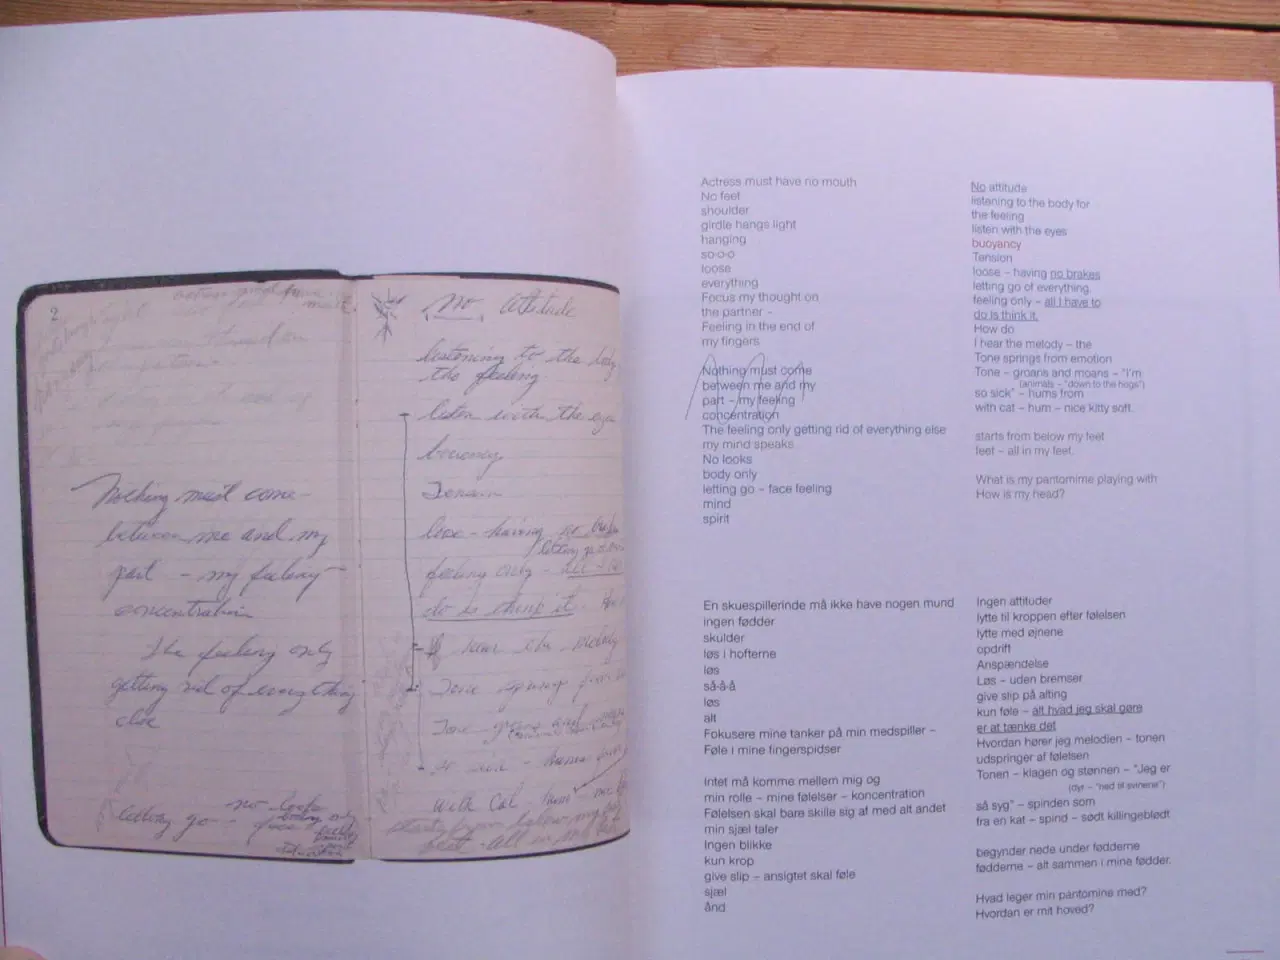 2
Nothing must come
between me and my
part - my feeling
concentration
The feeling only
getting rid of everything
else
no looks
body only
letting go - face
No Attitude
listening to the body
the feeling
listen with the eyes
Tension
loose - having no
letting go
feeling only - all I
do is think it.
hear the melody
Tone
Tone groans and
with cat - hum
feet - all in my
Actress must have no mouth
No feet
shoulder
girdle hangs light
hanging
so-o-o
loose
everything
Focus my thought on
the partner -
Feeling in the end of
my fingers
Nothing must come
between me and my
part – my feeling
concentration
The feeling only getting rid of everything else
my mind speaks
No looks
body only
letting go – face feeling
mind
spirit
No attitude
listening to the body for
the feeling
listen with the eyes
buoyancy
Tension
loose – having no brakes
letting go of everything.
feeling only – all I have to
do is think it.
How do
I hear the melody – the
Tone springs from emotion
Tone – groans and moans – "I'm
(animals – "down to the hogs")
so sick" – hums from
with cat – hum – nice kitty soft.
starts from below my feet
feet – all in my feet.
What is my pantomime playing with
How is my head?
En skuespillerinde må ikke have nogen mund
ingen fødder
skulder
løs i hofterne
løs
så-å-å
løs
alt
Fokusere mine tanker på min medspiller –
Føle i mine fingerspidser
Intet må komme mellem mig og
min rolle – mine følelser – koncentration
Følelsen skal bare skille sig af med alt andet
min sjæl taler
Ingen blikke
kun krop
give slip – ansigtet skal føle
sjæl
ånd
Ingen attituder
lytte til kroppen efter følelsen
lytte med øjnene
opdrift
Anspændelse
Løs – uden bremser
give slip på alting
kun føle – alt hvad jeg skal gøre
er at tænke det
Hvordan hører jeg melodien – tonen
udspringer af følelsen
Tonen – klagen og stønnen – "Jeg er
(dyr – "ned til svinene")
så syg" – spinden som
fra en kat – spind – sødt killingeblødt
begynder nede under fødderne
fødderne – alt sammen i mine fødder.
Hvad leger min pantomine med?
Hvordan er mit hoved?